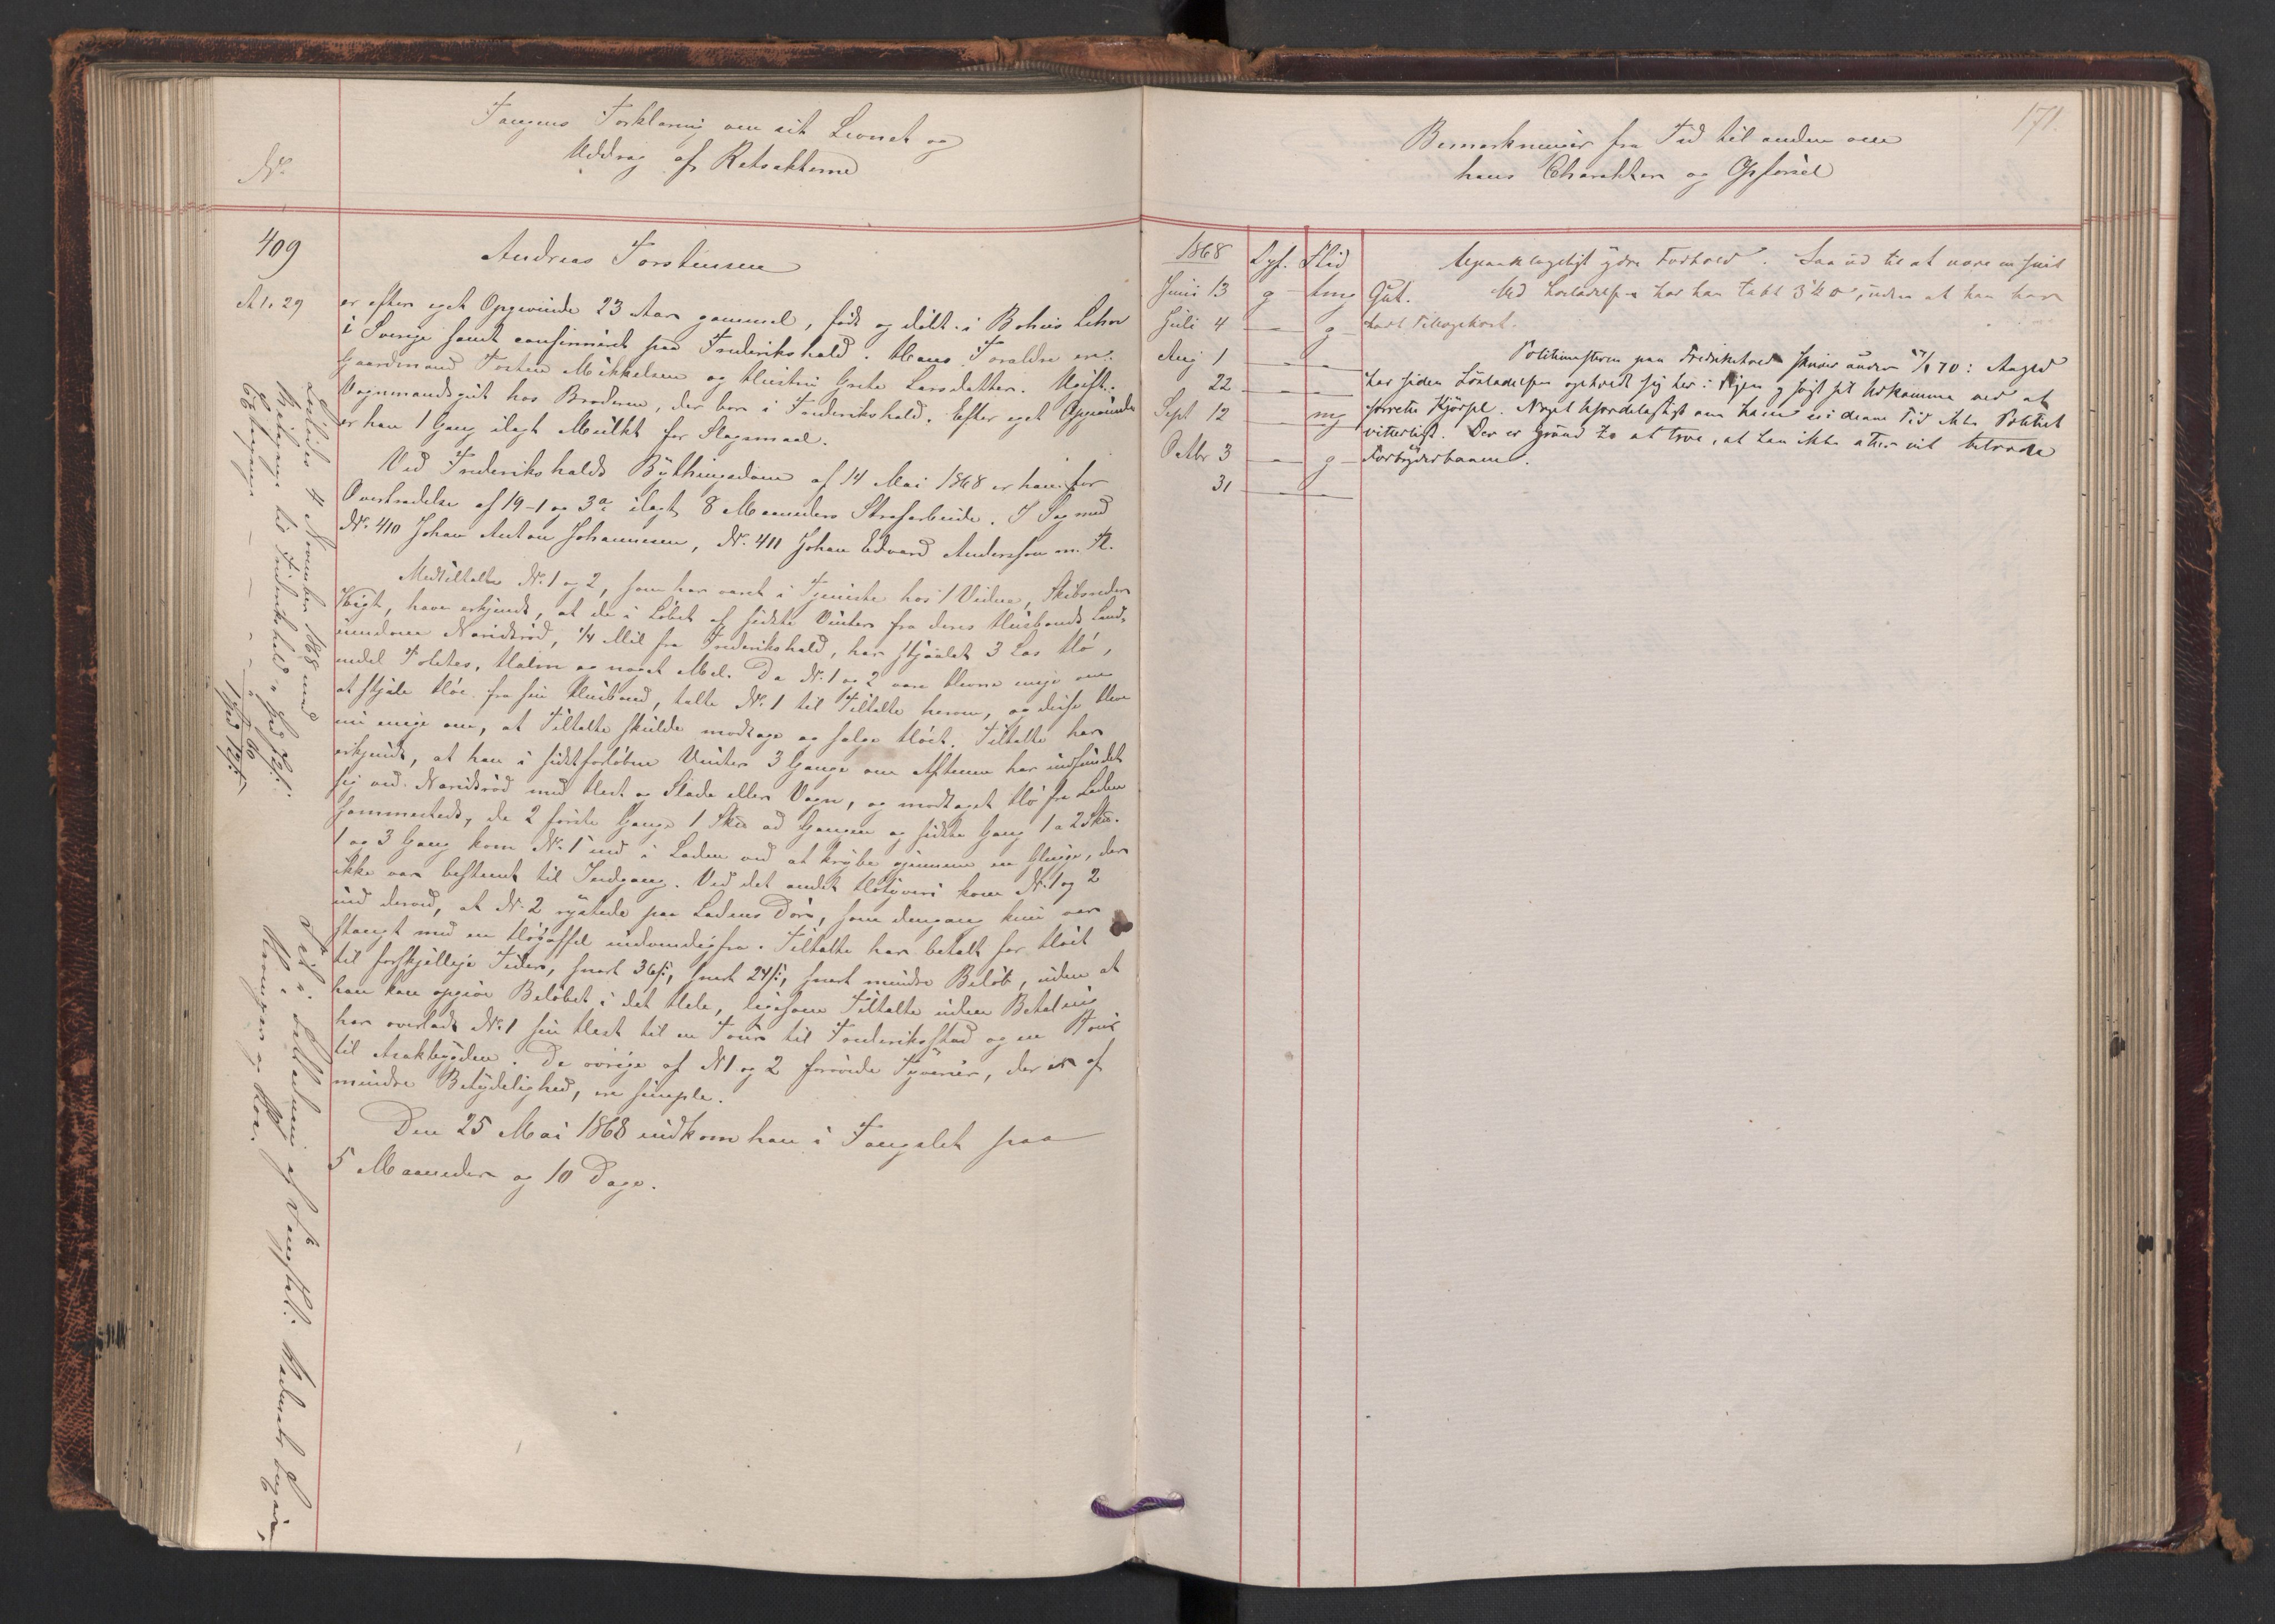 Fangens Forklaring om sit Levnet og
Uddrag af Retsakterne
No.
409
A 1. 29
Andreas Torstensen
er efter eget Opgivende 23 Aar gammel, født og døbt i Bohus Lehn
i Sverige samt confirmeret paa Frederikshald. Hans Forældre ere:
Gaardmand Torsten Mikkelsen og Hustru Grete Larsdatter. Ugift.
Vognmandsgut hos Broderen, der bor i Frederikshald. Efter eget Opgivende
er han 1 Gang ilagt Mulkt for Slagsmaal.
Ved Frederikshalds Bythingsdom af 14 Mai 1868 er han for
Overtrædelse af 19-1 og 3a ilagt 8 Maaneders Strafarbeide. I Sag med
No. 410 Johan Anton Johannesen, No. 411 Johan Edvard Andersson m. fl.
Medtiltalte No. 1 og 2, som har været i Tjeneste hos Vidne, Skibsreder
Wigt, have erkjendt, at de i Løbet af sidste Vinter fra deres Husbonds Land-
eiendom, 1/4 Mil fra Frederikshald, har stjaalet 3 Læs Hø,
endel Poteter, Halm og noget Mel. Da No. 1 og 2 vare blevne enige om
at stjæle Høe fra sin Husbond, talte No. 1 til Tiltalte herom, og disse bleve
nu enige om, at Tiltalte skulde modtage og sælge Høet. Tiltalte har
erkjendt, at han i sidstforløbne Vinter 3 Gange om Aftenen har indfundet
sig ved med Hest og Slæde eller Vogn, og modtaget Hø fra Laden
sammesteds, de 2 første Gange 1 Skd ad Gangen og sidste Gang 1 a 2 Skd.
1 og 3 Gang kom No. 1 ind i Laden ved at krybe gjennem en Gluge, der
ikke var bestemt til Indgang. Ved det andet Høtyveri kom No. 1 og 2
ind derved, at No. 2 rystede paa Ladens Dør, som dengang kun var
stængt med en Høgaffel indvendigfra. Tiltalte har betalt for Høet
til forskjellige Tider, snart 36 s, snart 24 s, snart mindre Beløb, uden at
han kan opgive Beløbet i det Hele, ligesom Tiltalte uden Betaling
har overladt No. 1 sin Hest til en Tour til Frederiksstad og en Tour
til. De øvrige af No 1 og 2 forøvede Tyverier, der er af
mindre Betydelighed, ere simple.
Den 25 Mai 1868 indkom han i Fangslet paa
5 Maaneder og 10 Dage.
Løsladt 4 November 1868 med
til Frederikshald
171.
Bemærkninger fra Tid til anden om
hans Charakter og Opførsel
1868 Opf. Flid
Juni 13 g tmg
Juli 4 — g
Aug 1 — —
22 — —
Sept 12 — mg
Octbr 3 — g
31 — —
Upaaklageligt ydre Forhold. Saa ud til at være en snil
Gut. Ved Løsladelsen har han tabt 3 uden at han har
havt Tillægskost.
Politimesteren paa Fredrikshald skriver under 27/1 70: Angjed
har siden Løsladelsen opholdt sig her i Byen og søgt sit Udkomme ved at
forrette Kjørsel. Noget ufordelagtigt om ham er i denne Tid ikke Politiet
vitterligt. Der er Grund til at tro, at han ikke atter vil betræde
Forbryderbanen.